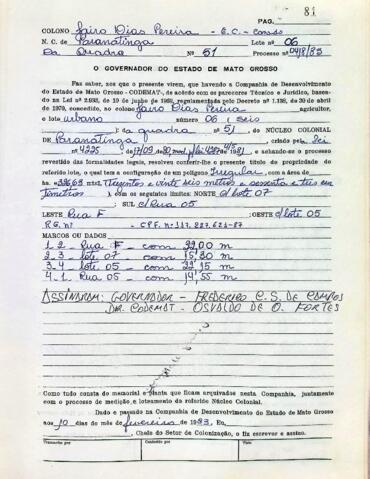 81
PAG.
COLONO Jairo Dias Pereira - E.C. - Casado
N. C. de Paranatinga Lote nº 06
Da Quadra Nº 51 Processo nº 0418/83
O GOVERNADOR DO ESTADO DE MATO GROSSO
Faz saber, aos que o presente virem, que havendo a Companhia de Desenvolvimento
do Estado de Mato Grosso - CODEMAT-, de acôrdo com os pareceres Técnico e Jurídico, basea-
do na Lei nº 2.093, de 19 de junho de regulamentada pelo Decreto nº 1.138, de 30 de abril
de 1970, concedido, ao colono Jairo Dias Pereira agricultor,
o lote urbano número 06 (seis
): da quadra nº 51, DO NÚCLEO COLONIAL
DE Paranatinga, criado pela Lei
nº 4225 de 17/09 e achando-se o processo
revestido das formalidades legais, resolveu conferir-lhe o presente título de propriedade do
referido lote, o qual tem a configuração de um polígono Irregular, com a área de
(Trezentos e vinte seis metros e sessenta e tres cen
tímetros), com os seguintes limites: NORTE c/ lote 07
; SUL c/ Rua 05
LESTE Rua F ; OESTE c/ lote 05
R.G. nº - C.P.F. nº 117.227.621-87
MARCOS OU DADOS
1 2 - Rua F - com 22,00 m
2. 3 - lote 07 - com 15,30 m
3. 4 - lote 05 - com 22,15 m
4. 1 - Rua 05 - com 14,55 m
ASSINARAM: GOVERNADOR - FREDERICO C. S. DE CAMPOS
DIR. CODEMAT - OSVALDO DE O. FORTES
Como tudo consta do memorial e planta que ficam arquivados nesta Companhia, juntamente
com o processo de medição e loteamento do referido Núcleo Colonial.
Dado e passado na Companhia de Desenvolvimento do Estado de Mato Grosso
aos 10 dias do mês de fevereiro de 1983, Eu,
, Chefe do Setor de Colonização, o fiz escrever e assino.
Transcrito por Conferido por Visto